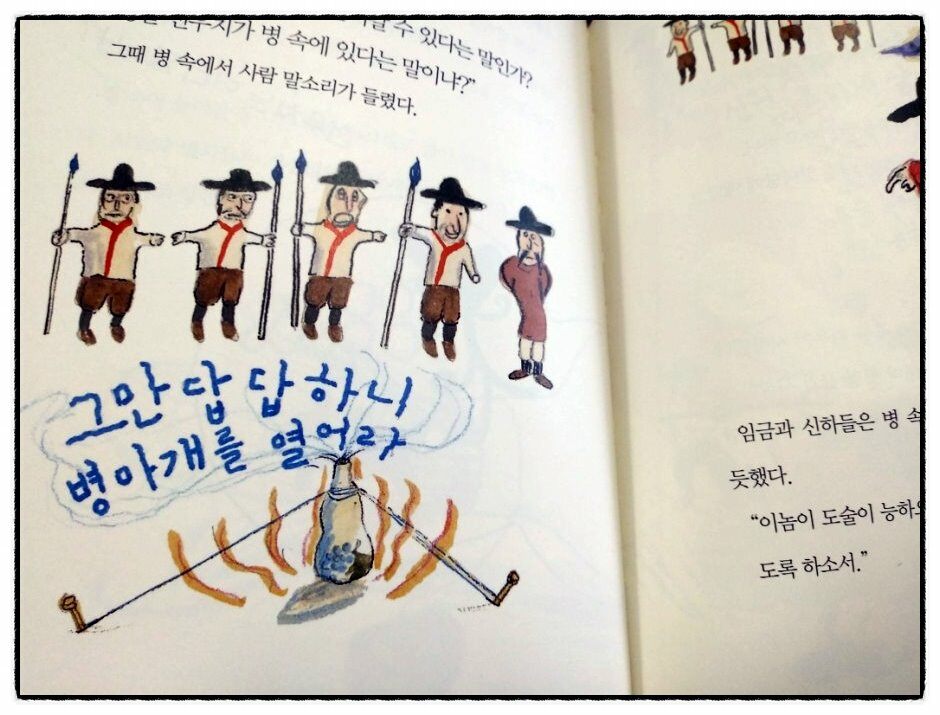 수 있다는 말인가?
병 속에 있다는 말이냐?”
그때 병 속에서 사람 말소리가 들렸다.
그만 답답하니
병마개를 열어라
임금과 신하들은 병 속
듯했다.
“이놈이 도술이 능하오
도록 하소서.”